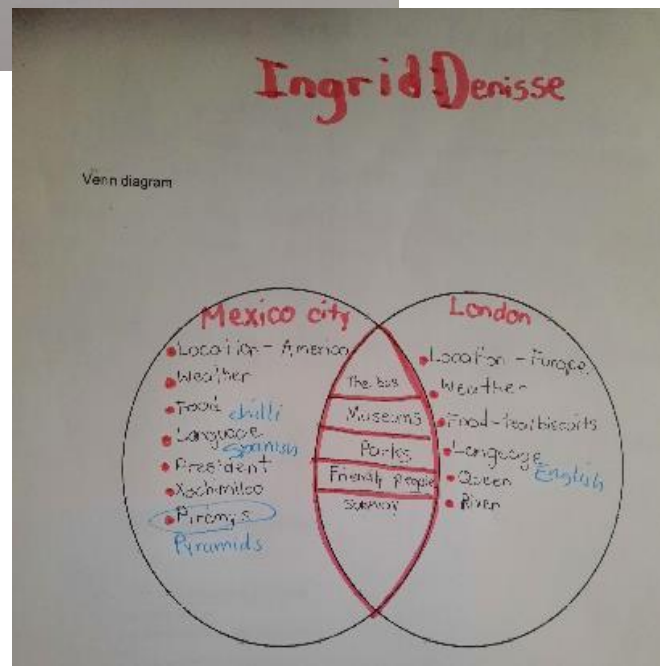 Ingrid Denisse
Venn diagram
Mexico city
• Location - America
• Weather
• Food chilli
• Language
Spanish
• President
• Xochimilco
• Pyramids
The bus
Museums
Parks
Friendly people
subway
London
• Location - Europe
• Weather
• Food - tea/biscuits
• Language
English
• Queen
• River